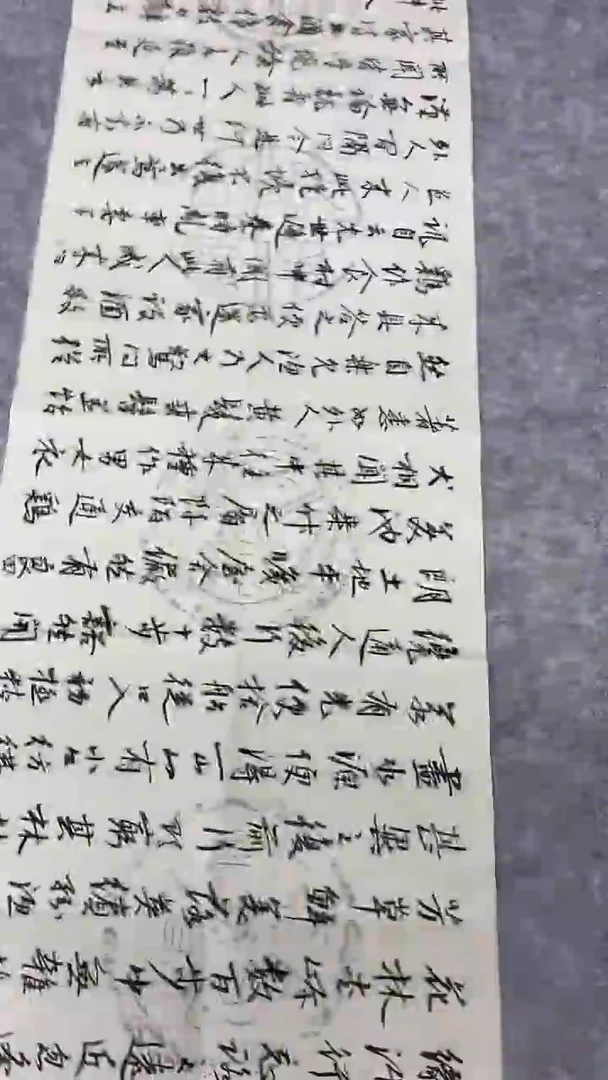 行忘路之遠近忽逢
花林夾岸數百步中無雜
芳草鮮美落英繽紛漁
甚異之復前行欲窮其林
盡水源便得一山山有小口彷
若有光便捨船從口入初極狹
纔通人復行數十步豁然開
朗土地平曠屋舍儼然有良田
美池桑竹之屬阡陌交通雞
犬相聞其中往來種作男女衣
著悉如外人黃髮垂髫並怡
然自樂見漁人乃大驚問所從
來具答之便要還家設酒殺
雞作食村中聞有此人咸來問
訊自云先世避秦時亂率妻子
邑人來此絕境不復出焉遂與
外人間隔問今是何世乃不知有
無論魏晉此人一一為具言
所聞皆歎惋餘人各復延至
其家皆出酒食停數日辭